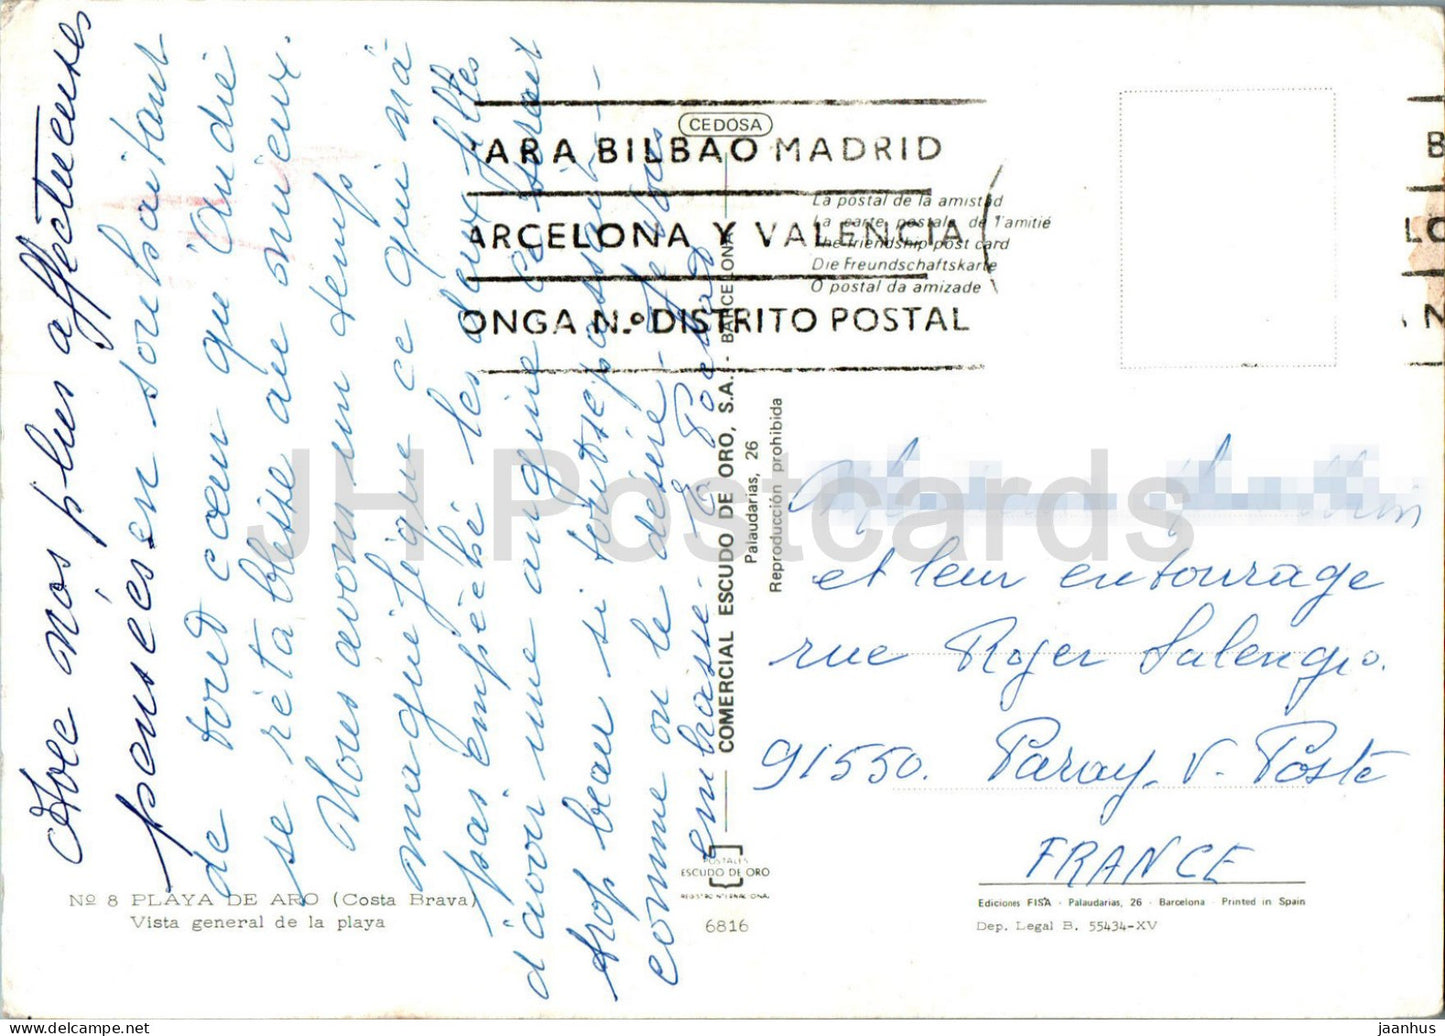 Avec nos plus affectueuses
pensées en souhaitant
de tout cœur qu'Andrée
se rétablisse au mieux.
Nous avons un temps
magnifique ce qui n'a
pas empêché les deux filles
d'avoir une angine ce serait
trop beau si tout se passait
comme on le désire - Je vous
embrasse -
CEDOSA
PARA BILBAO MADRID
BARCELONA Y VALENCIA
PONGA N.º DISTRITO POSTAL
B
LO
N
La postal de la amistad
La carte postale de l'amitié
The friendship post card
Die Freundschaftskarte
O postal da amizade
COMERCIAL ESCUDO DE ORO, S.A. - BARCELONA
Palaudarias, 26
Reproducción prohibida
et leur entourage
rue Roger Salengro.
91550. Paray. V. Poste
FRANCE
Nº 8 PLAYA DE ARO (Costa Brava)
Vista general de la playa
POSTALES
ESCUDO DE ORO
REGISTRO INTERNACIONAL
6816
Ediciones FISA - Palaudarias, 26 - Barcelona - Printed in Spain
Dep. Legal B. 55434-XV
JH Postcards
jaanhus / delcampe.net